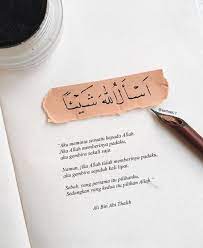 اَسْأَلُ اللهَ شَيْئًا
"Aku meminta sesuatu kepada Allah.
Jika Allah memberinya padaku,
aku gembira sekali saja.
Namun, jika Allah tidak memberinya padaku,
aku gembira sepuluh kali lipat.
Sebab, yang pertama itu pilihanku.
Sedangkan yang kedua itu pilihan Allah."
Ali Bin Abi Thalib